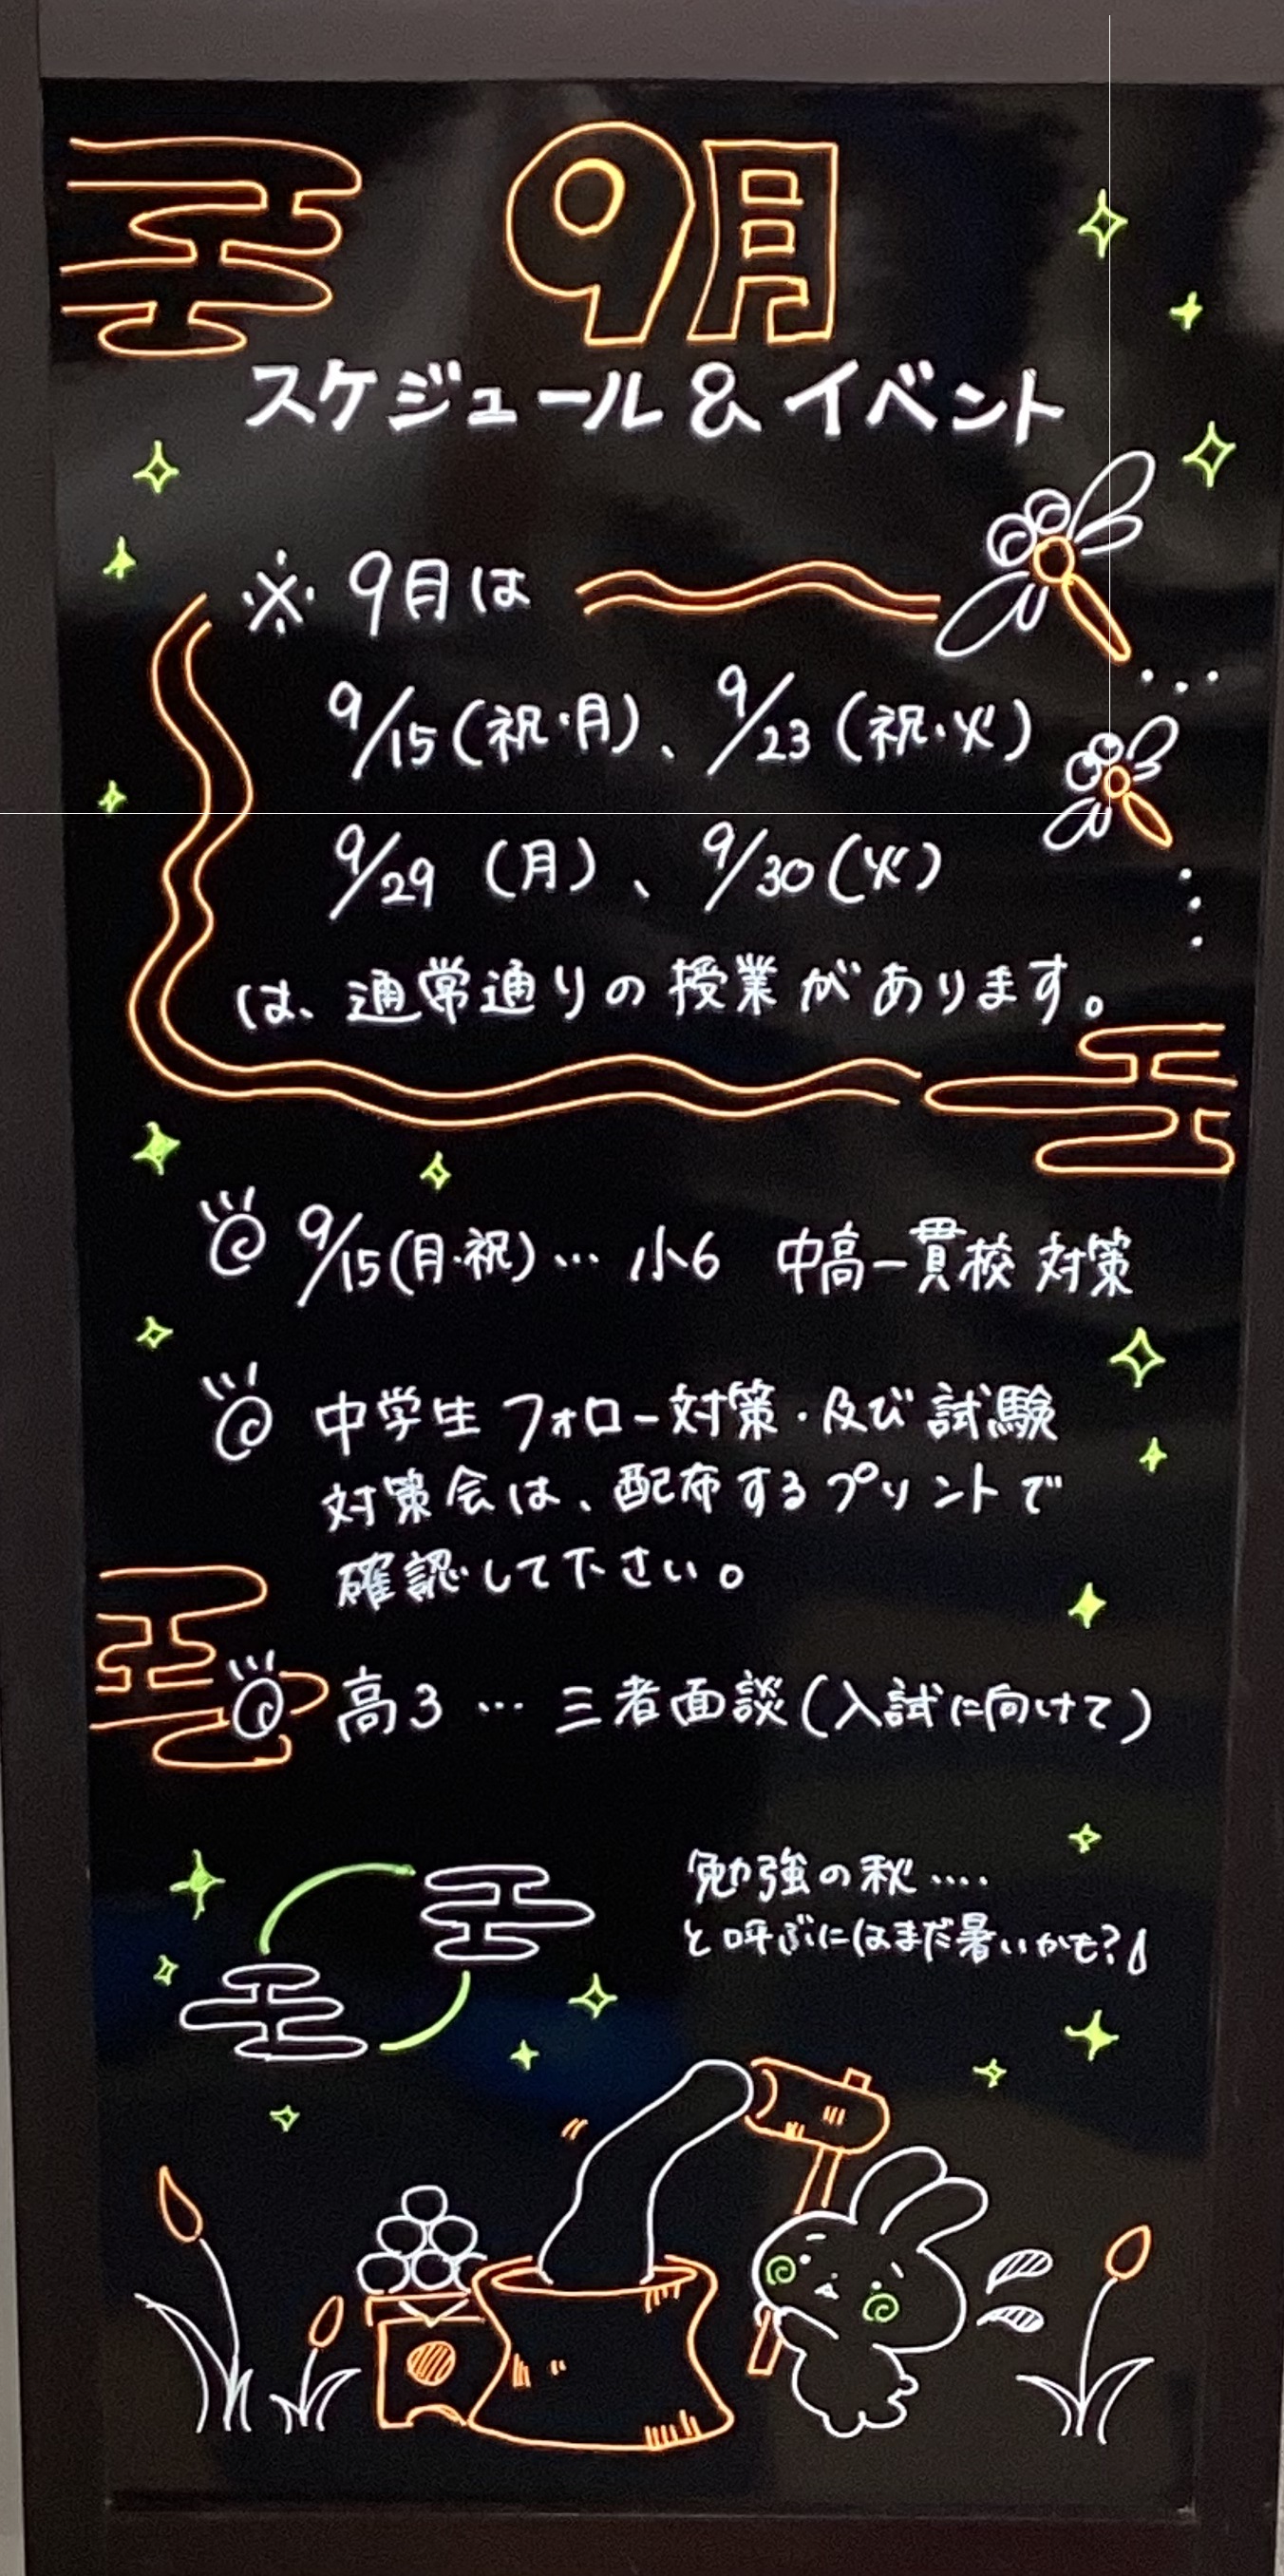 9月
スケジュール & イベント
※ 9月は
9/15(祝・月)、9/23(祝・火)
9/29(月)、9/30(火)
は、通常通りの授業があります。
9/15(月・祝)… 小6 中高一貫校 対策
中学生 フォロー対策・及び 試験
対策会は、配布するプリントで
確認して下さい。
高3 … 三者面談(入試に向けて)
勉強の秋‥‥
と呼ぶにはまだ暑いかも?